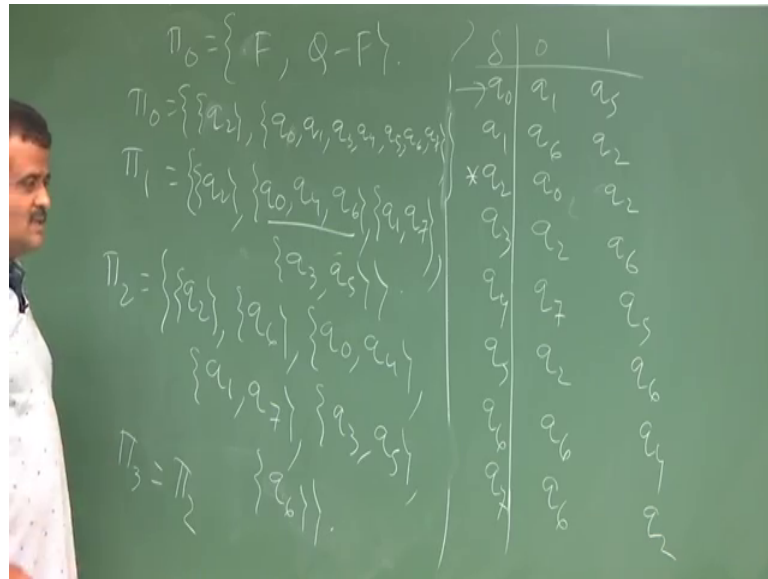 Π₀ = { F, Q-F }.
Π₀ = {{q₂}, {q₀, q₁, q₃, q₄, q₅, q₆, q₇}}
Π₁ = {{q₂}, {q₀, q₄, q₆}, {q₁, q₇},
{q₃, q₅}}.
Π₂ = {{q₂}, {q₆}, {q₀, q₄},
{q₁, q₇}, {q₃, q₅},
{q₆}}.
Π₃ = Π₂
δ 0 1
→q₀ q₁ q₅
q₁ q₆ q₂
*q₂ q₀ q₂
q₃ q₂ q₆
q₄ q₇ q₅
q₅ q₂ q₆
q₆ q₆ q₄
q₇ q₆ q₂